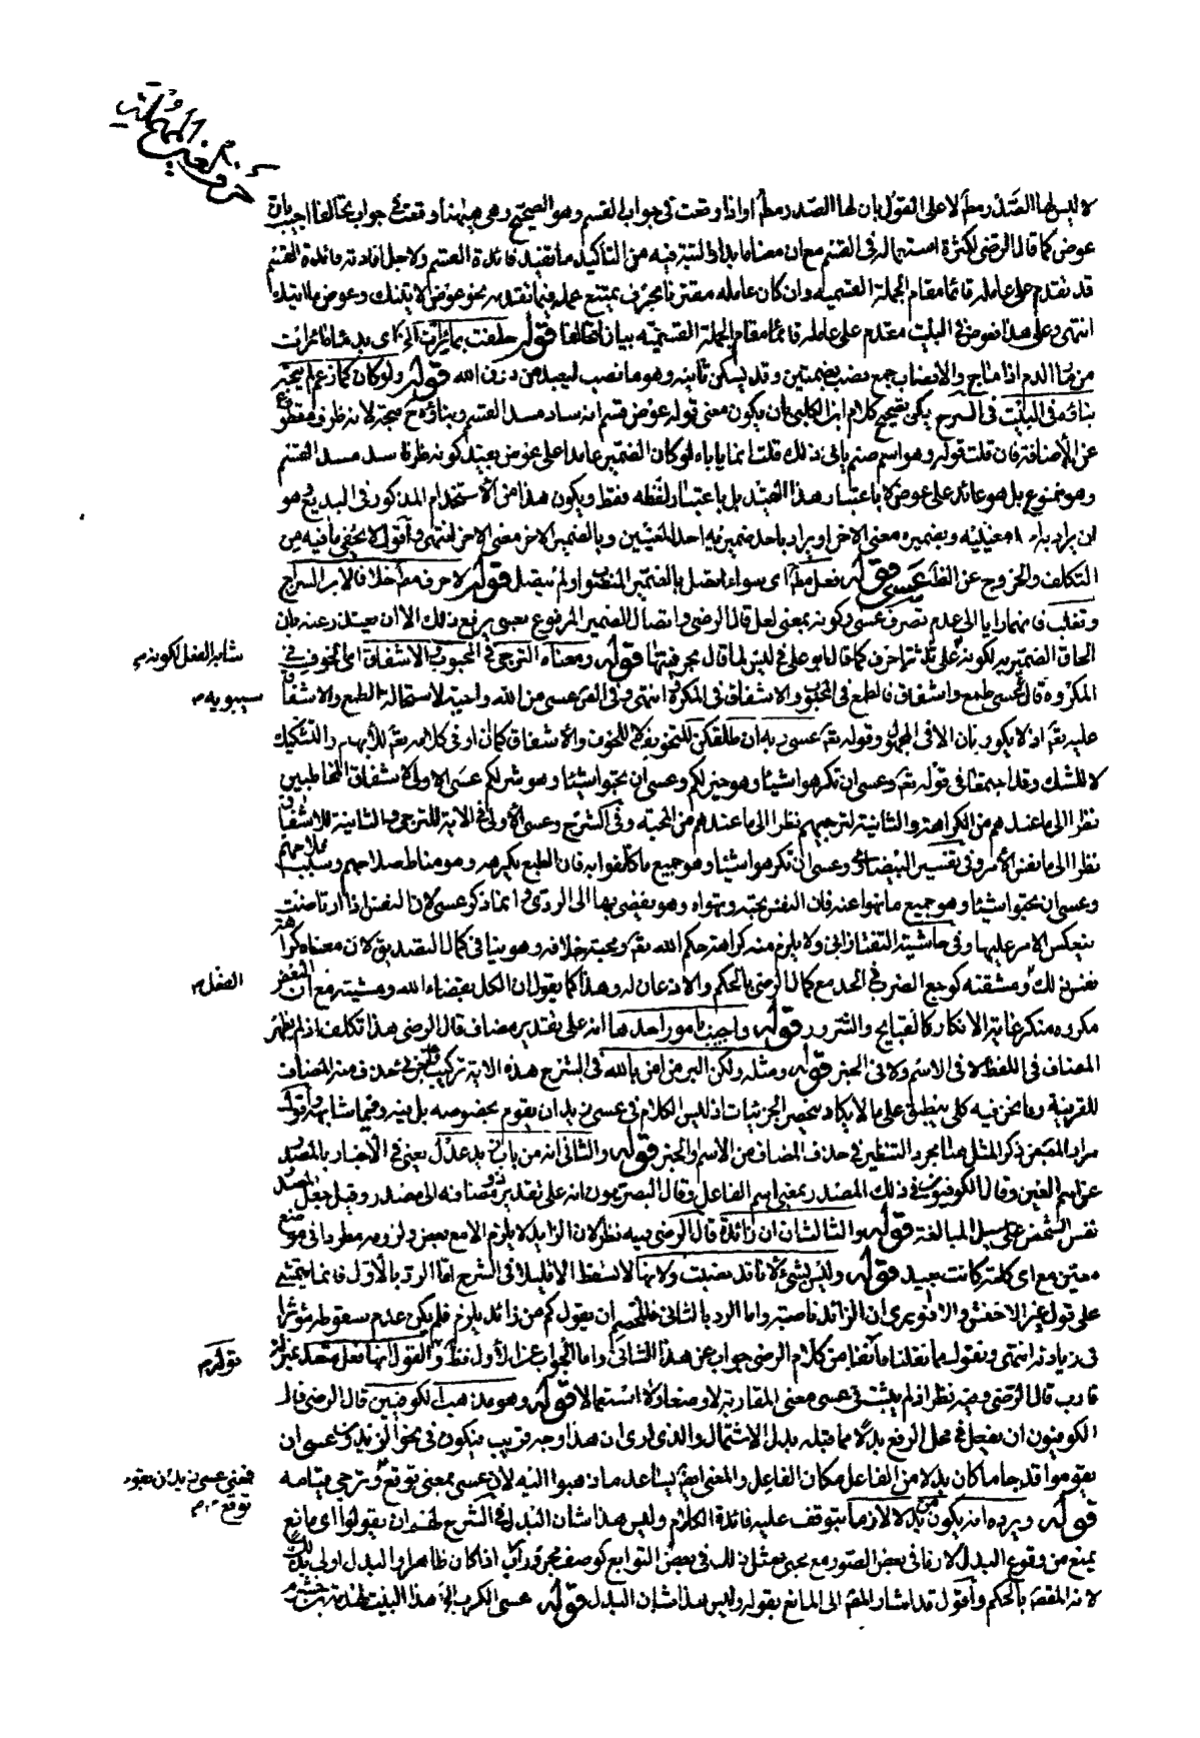 حرف العين المهملة
لا ليس لها الصدر مطلقا لا على القول بان لها الصدر مطلقا او اذا وقعت فى جواب القسم وهو الصحيح وهى ههنا وقعت فى جواب بخالفنا اجيب بان
عوض كما قال الرضى لكثرة استعماله فى القسم مع ان معناه ابدا والبتة فيه من التاكيد ما يفيد فائدة القسم ولاجل افادته فائدة القسم
قد يقدم على عامله قائما مقام الجملة القسمية وان كان عامله مقترنا بحرف يمتنع عمله فيما تقدمه نحو عوض لاتينك وعوض ما اتيتك
انتهى وعلى هذا فعوض فى البيت مقدم على عامله قائما مقام الجملة القسمية بيان لقالفا قوله حلفت بمائرات الخ اى بدماء مائرات
من مار الدم اذا ماج والانصاب جمع نصب بضمتين وقد يسكن ثانيه وهو ما نصب ليعبد من دون الله قوله ولو كان كما زعم لم يتجه
بناؤه فى البيت فى الشرح يمكن تصحيح كلام ابن الكلبى بان يكون معنى قوله عوض قسم انه ساد مسد القسم وبناؤه ح متجه لانه ظرف مقطوع
عن الاضافة فان قلت قوله وهو اسم صنم يابى ذلك قلت انما ياباه لو كان الضمير عائدا على عوض بقيد كونه ظرفا سد مسد القسم
وهو ممنوع بل هو عائد على عوض لا باعتبار هذا القيد بل باعتبار لفظه فقط ويكون هذا من الاستخدام المذكور فى البديع هو
ان يراد به احد معنييه وبضميره معنى الاخر او يراد باحد ضميريه احد المعنيين وبالضمير الاخر معنى الاخر انتهى واقول لا يخفى ما فيه من
التكلف والخروج عن الظ عسى قوله فعل مطلقا اى سواء اتصل بالضمير المنصوب او لم يتصل قوله لا حرف مطلقا خلافا لابن السراج
وثعلب فانهما رايا الى عدم تصرف عسى وكونه بمعنى لعل قال الرضى واتصال الضمير المرفوع بعسى يرفع ذلك الا ان يعتذر عنه بان
الحاق الضمير به لكونه على ثلثة احرف كما قال ابو على فى ليس لما قال بحرفيتها قوله ومعناه الترجى فى المحبوب والاشفاق اى الخوف فى
شابه الفعل لكونه م
المكروه قال عسى طمع واشفاق فالطمع فى المحبوب والاشفاق فى المكروه انتهى وفى القران عسى من الله واجبة لاستحالة الطمع والاشفاق
سيبويه م
عليه تع اذ لا يكونان الا فى المجهول وقوله تع عسى ربه ان طلقكن للتخويف لا للخوف والاشفاق كما ان او فى كلامه تع للابهام والتشكيك
لا للشك وقد اجتمعا فى قوله تع وعسى ان تكرهوا شيئا وهو خير لكم وعسى ان تحبوا شيئا وهو شر لكم عسى الاولى لاشفاق المخاطبين
نظرا الى ما عندهم من الكراهة والثانية لترجيهم نظرا الى ما عندهم من المحبة وفى الشرح وعسى الاولى فى الاية للترجى والثانية للاشفاق
نظرا الى ما نفس الامر وفى تفسير البيضاوى وعسى ان تكرهوا شيئا وهو جميع ما كلفوا به فان الطبع يكرهه وهو مناط صلاحهم وسبب فلاحهم
وعسى ان تحبوا شيئا وهو جميع ما نهوا عنه فان النفس تحبه وتهواه وهو يفضى بها الى الردى وانما ذكر عسى لان النفس اذا ارتاضت
ينعكس الامر عليها وفى حاشية التفتازانى ولا يلزم منه كراهة حكم الله تع ومحبة خلافه وهو ينافى كمال التصديق لان معناه كراهة
نفس ذلك ومشقته كوجع الضرب فى الحد مع كمال الرضى بالحكم والاذعان له وهذا كما يقول ان الكل بقضاء الله ومشيته مع ان البعض
الفعل م
مكروه منكر غاية الانكار كالقبايح والشرور قوله واجيب بامور احدها انه على تقدير مضاف قال الرضى هذا تكلف اذ لم يظهر
المضاف فى اللفظ لا فى الاسم ولا فى الخبر قوله ومثله ولكن البر من امن بالله فى الشرح هذه الاية تركيب جزئى حذف منه المضاف
للقرينة وما نحن فيه كلى ينطبق على ما لا يكاد ينحصر الجزئيات اذ ليس الكلام فى عسى زيد ان يقوم بخصوصه بل فيه وفيما شابهه واقول
مراد المص من ذكر المثل هنا مجرد التنظير فى حذف المضاف من الاسم والخبر قوله والثانى انه من باب زيد عدل يعنى فى الاخبار بالمصدر
عن اسم العين وقال الكوفيون فى ذلك المصدر بمعنى اسم الفاعل وقال البصريون انه على تقدير ذو مضافة الى مصدر وقيل جعل المصدر
نفس الشخص على سبيل المبالغة قوله والثالث ان زائدة قال الرضى وفيه نظر لان الزايد لا يلزم الا مع بعض ولزومه مطردا فى موضع
معين مع اى كلمة كانت بعيد قوله وليس بشىء لانها قد نصبت ولانها لا تسقط الا قليلا فى الشرح اما الرد بالاول فانما يتمشى
على قول غير الاخفش والا فهو يرى ان الزائد ناصبة واما الرد بالثانى فللخصم ان يقول كم من زائد يلزم فلم يكن عدم سقوطه مؤثرا
فى زيادته انتهى ونقول مما نقلناه انفا من كلام الرضى جواب عن هذا الثانى واما الجواب عن الاول فظ والقول انها فعل متعد بمنزلة
قوله م
قارب قال الرضى وفيه نظر اذ لم يثبت فى عسى معنى المقاربة لا وضعا ولا استعمالا قوله وهو مذهب الكوفيين قال الرضى قال
الكوفيون ان يفعل فى محل الرفع بدلا مما قبله بدل الاشتمال والذى ارى ان هذا وجه قريب فيكون فى نحو الزيدون عسى ان
يقوموا قد جاء ما كان بدلا من الفاعل مكان الفاعل والمعنى ايضا يساعد ما ذهبوا اليه لان عسى بمعنى توقع وترجى قيامه
فمعنى عسى زيد ان يقوم توقع م
قوله ويرده انه يكون بدلا لازما يتوقف عليه فائدة الكلام وليس هذا شان البدل فى الشرح لهم ان يقولوا اى مانع
يمنع من وقوع البدل لازما فى بعض الصور مع مجىء مثل ذلك فى بعض التوابع كوصف مجرور رب اذا كان ظاهرا والبدل اولى بذلك
لانه المقصود بالحكم واقول قد اشار المص الى المانع بقوله وليس هذا شان البدل قوله عسى الكرب الخ هذا البيت لهدبة بن خشرم